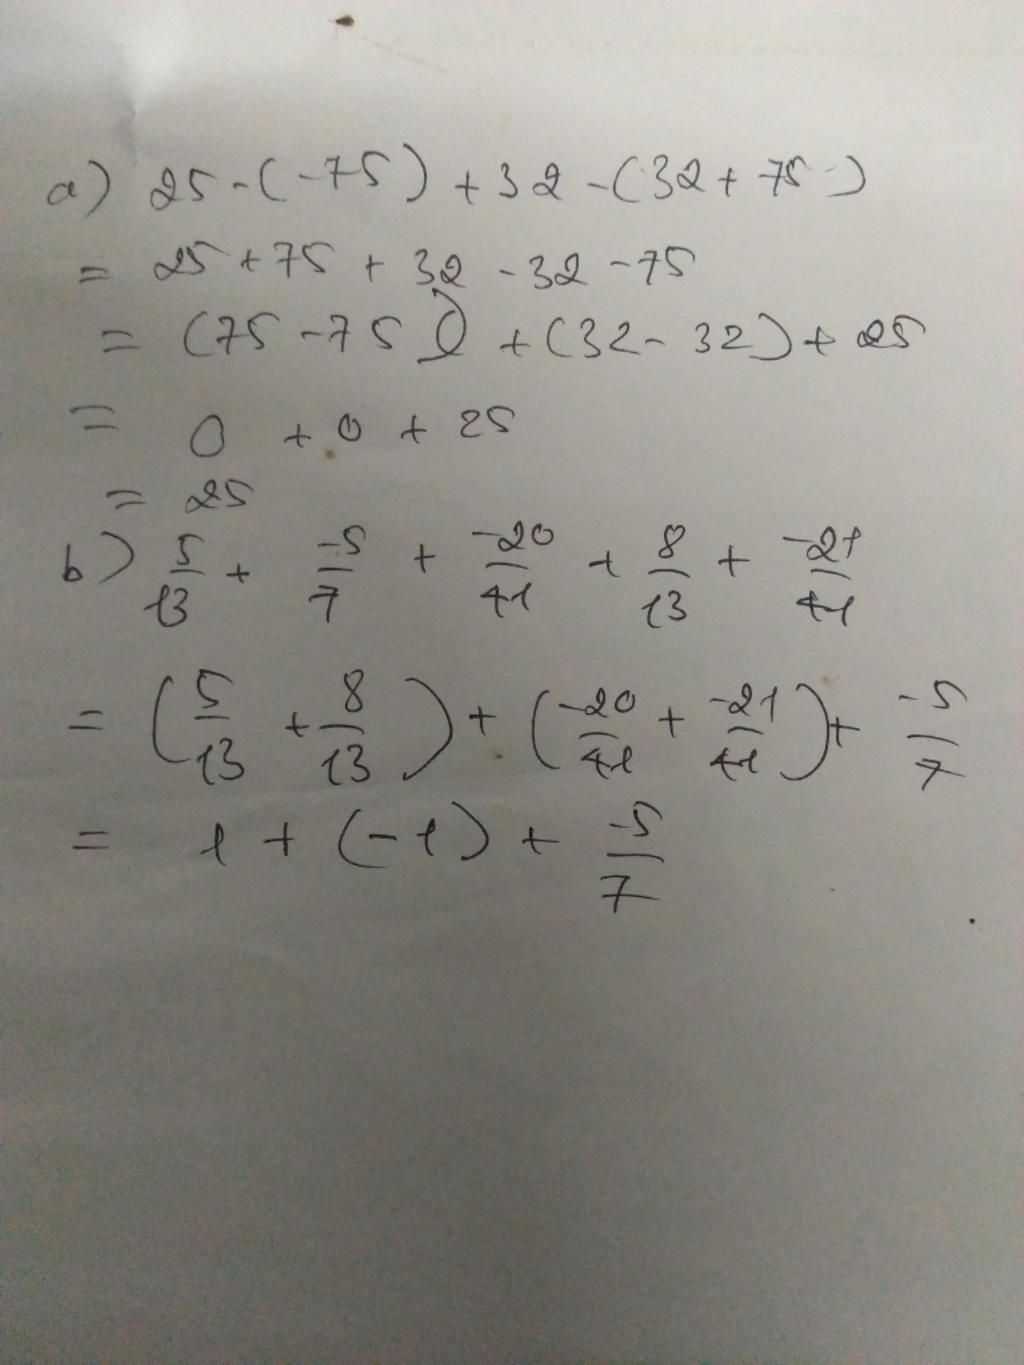 a) 25 - (-75) + 32 - (32 + 75)
= 25 + 75 + 32 - 32 - 75
= (75 - 75) + (32 - 32) + 25
= 0 + 0 + 25
= 25
b) 5/13 + -5/7 + -20/41 + 8/13 + -21/41
= (5/13 + 8/13) + (-20/41 + -21/41) + -5/7
= 1 + (-1) + -5/7